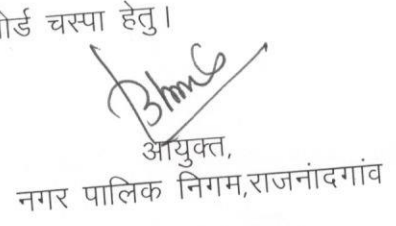 र्ड चस्पा हेतु।
आयुक्त,
नगर पालिक निगम,राजनांदगांव